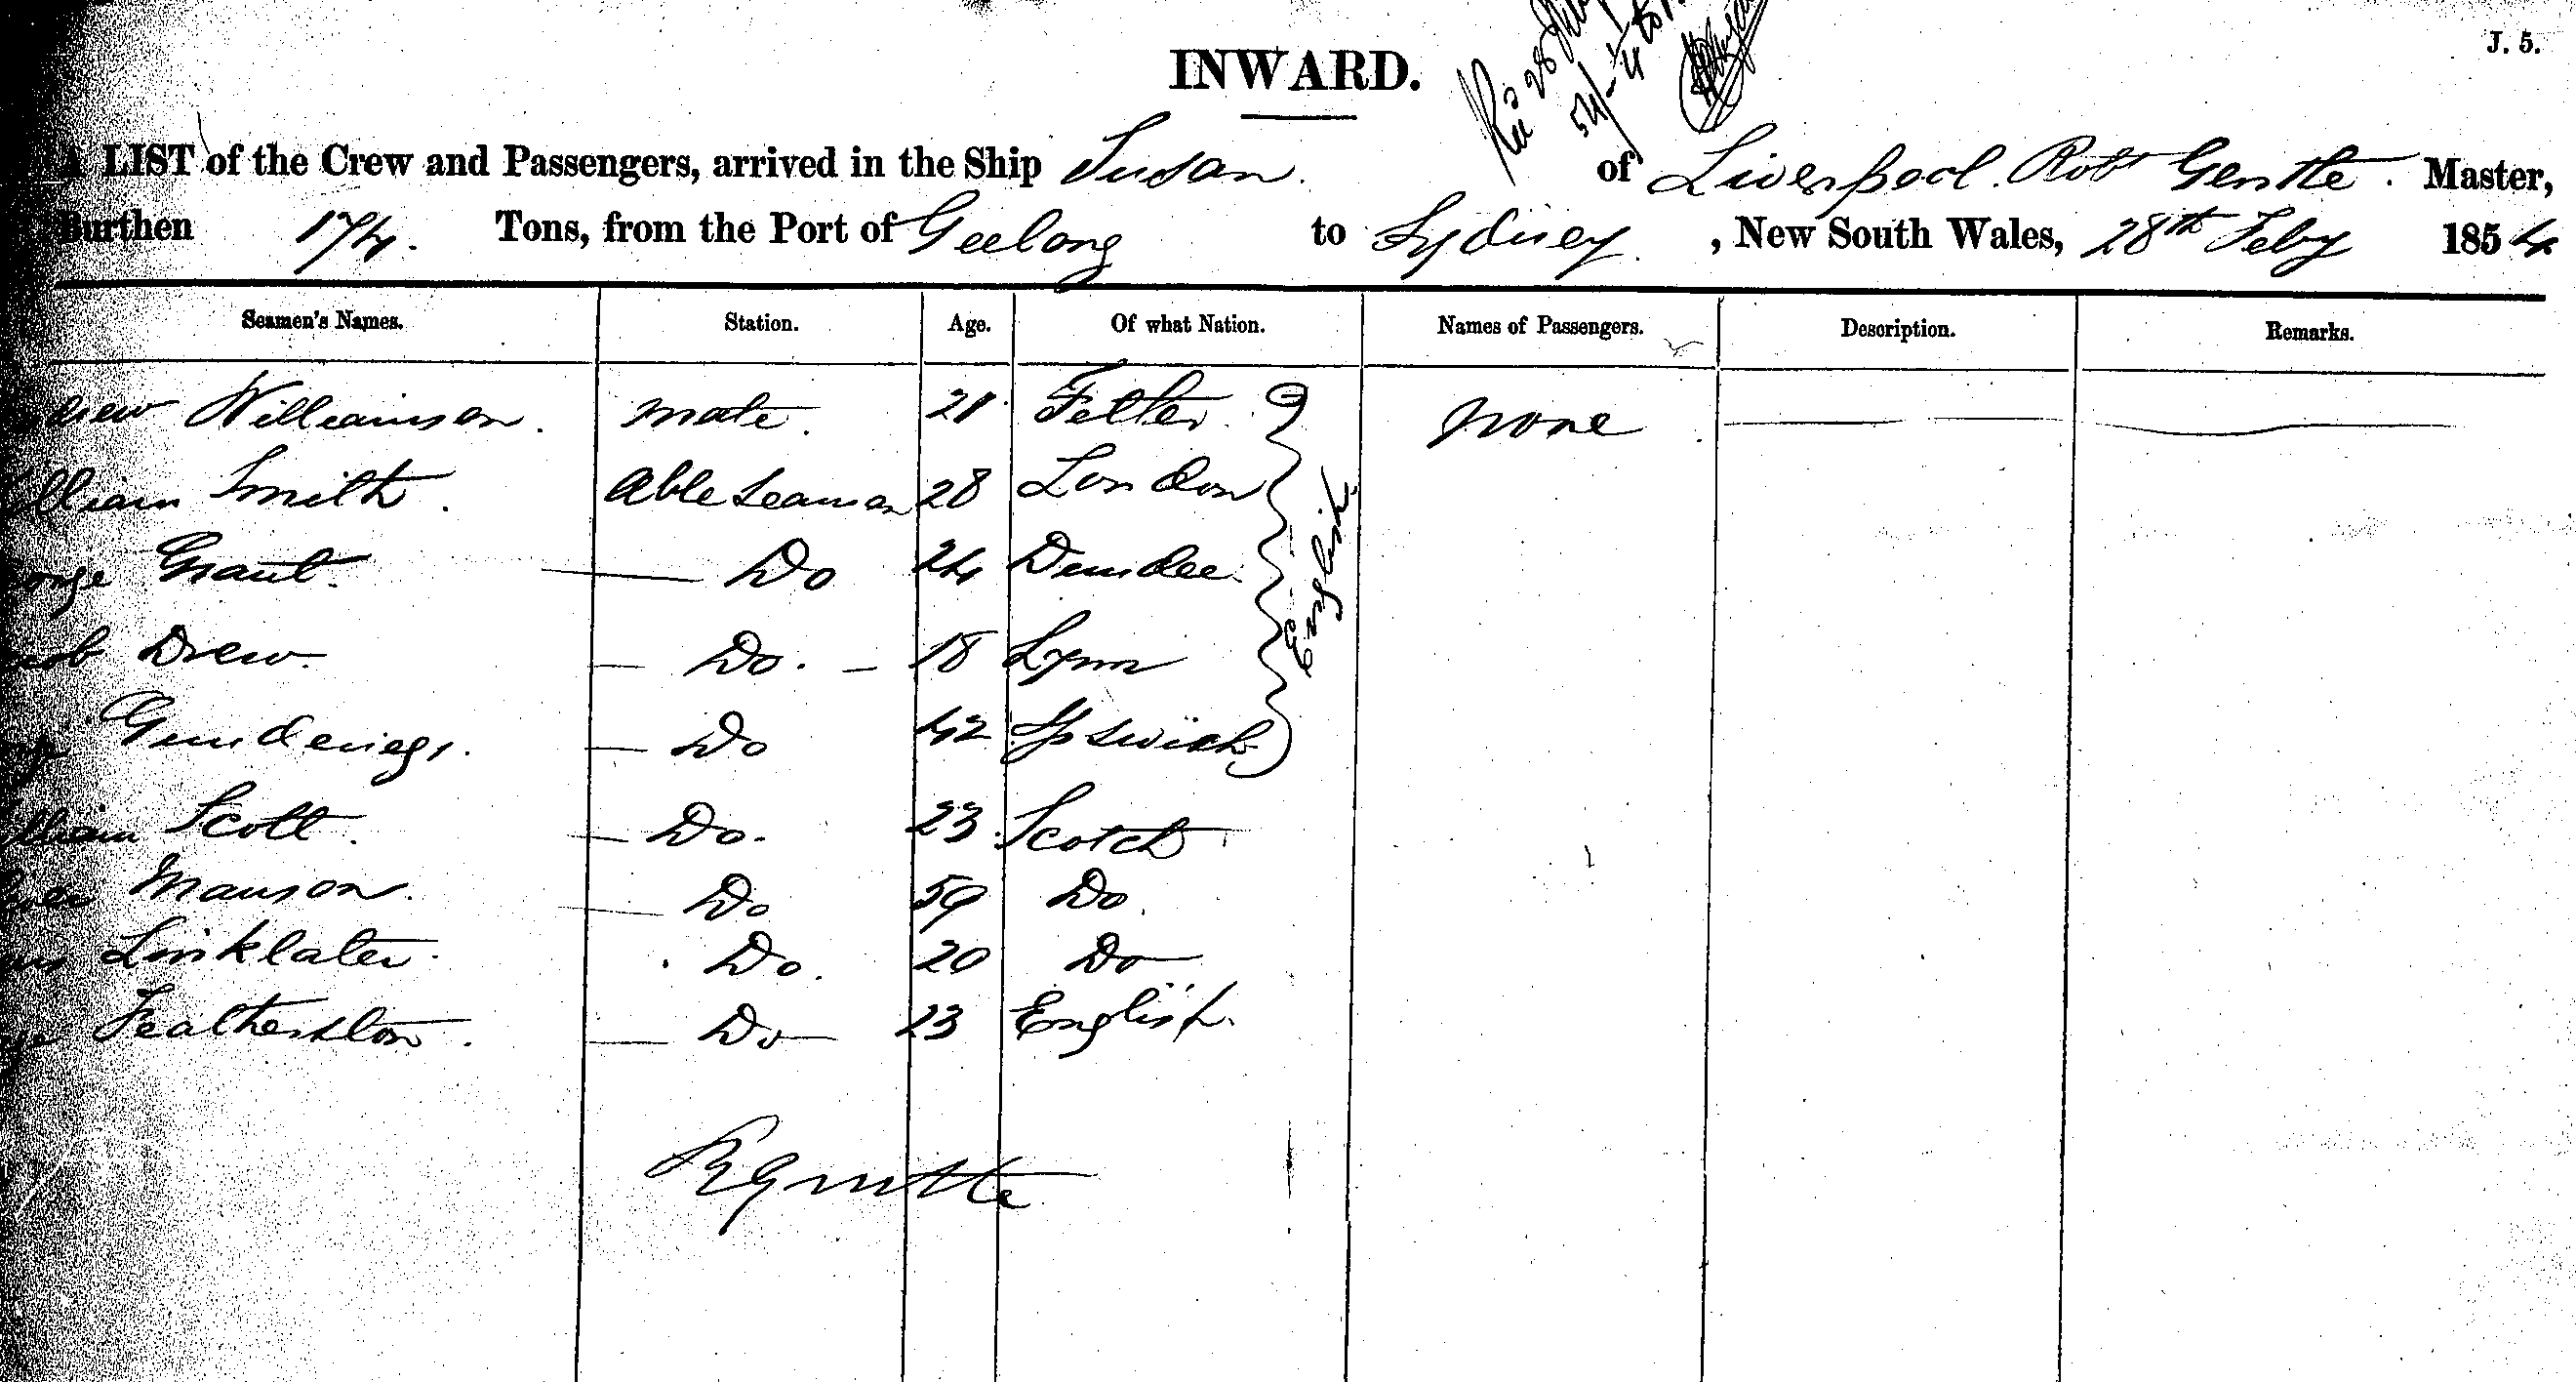 J. 5.
INWARD.
A LIST of the Crew and Passengers, arrived in the Ship Susan. of Liverpool. Robt Gentle. Master,
Burthen 174. Tons, from the Port of Geelong to Sydney, New South Wales, 28th Feby 1854
Seamen's Names. Station. Age. Of what Nation. Names of Passengers. Description. Remarks.
Williamson. Mate. 21 none
William Smith. Able Seaman 28 London
George Grant. Do 24 Dundee.
Drew. Do. 18 Lynn
Do 42 Ipswich
English
William Scott. Do. 23 Scotch
Manson. Do 59 Do.
Linklater. Do. 20 Do
Featherston. Do 23 English.
RGentle